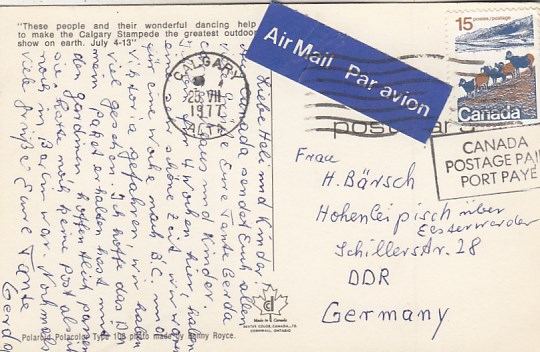 "These people and their wonderful dancing help
to make the Calgary Stampede the greatest outdoor
show on earth. July 4-13"
Air Mail Par avion
15 postes/postage
Canada
CALGARY
25 VII
1977
ALTA
CANADA
POSTAGE PAI
PORT PAYE
Frau
H. Bärsch
Hohenleipisch über
Elsterwerda
Schillerstr. 28
DDR
Germany
Liebe Heli und Kinder
Aus Kanada sendet Euch allen
Grüße Eure Tante Gerda
und Kinder.
4 Wochen hier, haben
eine sehr schöne Zeit, wir waren
für eine Woche nach B.C. und
Vitoria gefahren, wir haben
viel gesehen. Ich hoffe das Du
mein paket erhalten hast mit
den gardinen, hoffentlich passen
sie. Hatte noch keine Post als ich
noch in Berlin war. Nochmals
viele grüße Eure Tante
Gerda
Made in Canada
DEXTER COLOR CANADA, LTD.
CORNWALL, ONTARIO
Polaroid Polacolor Type 108 photo made by Benny Royce.